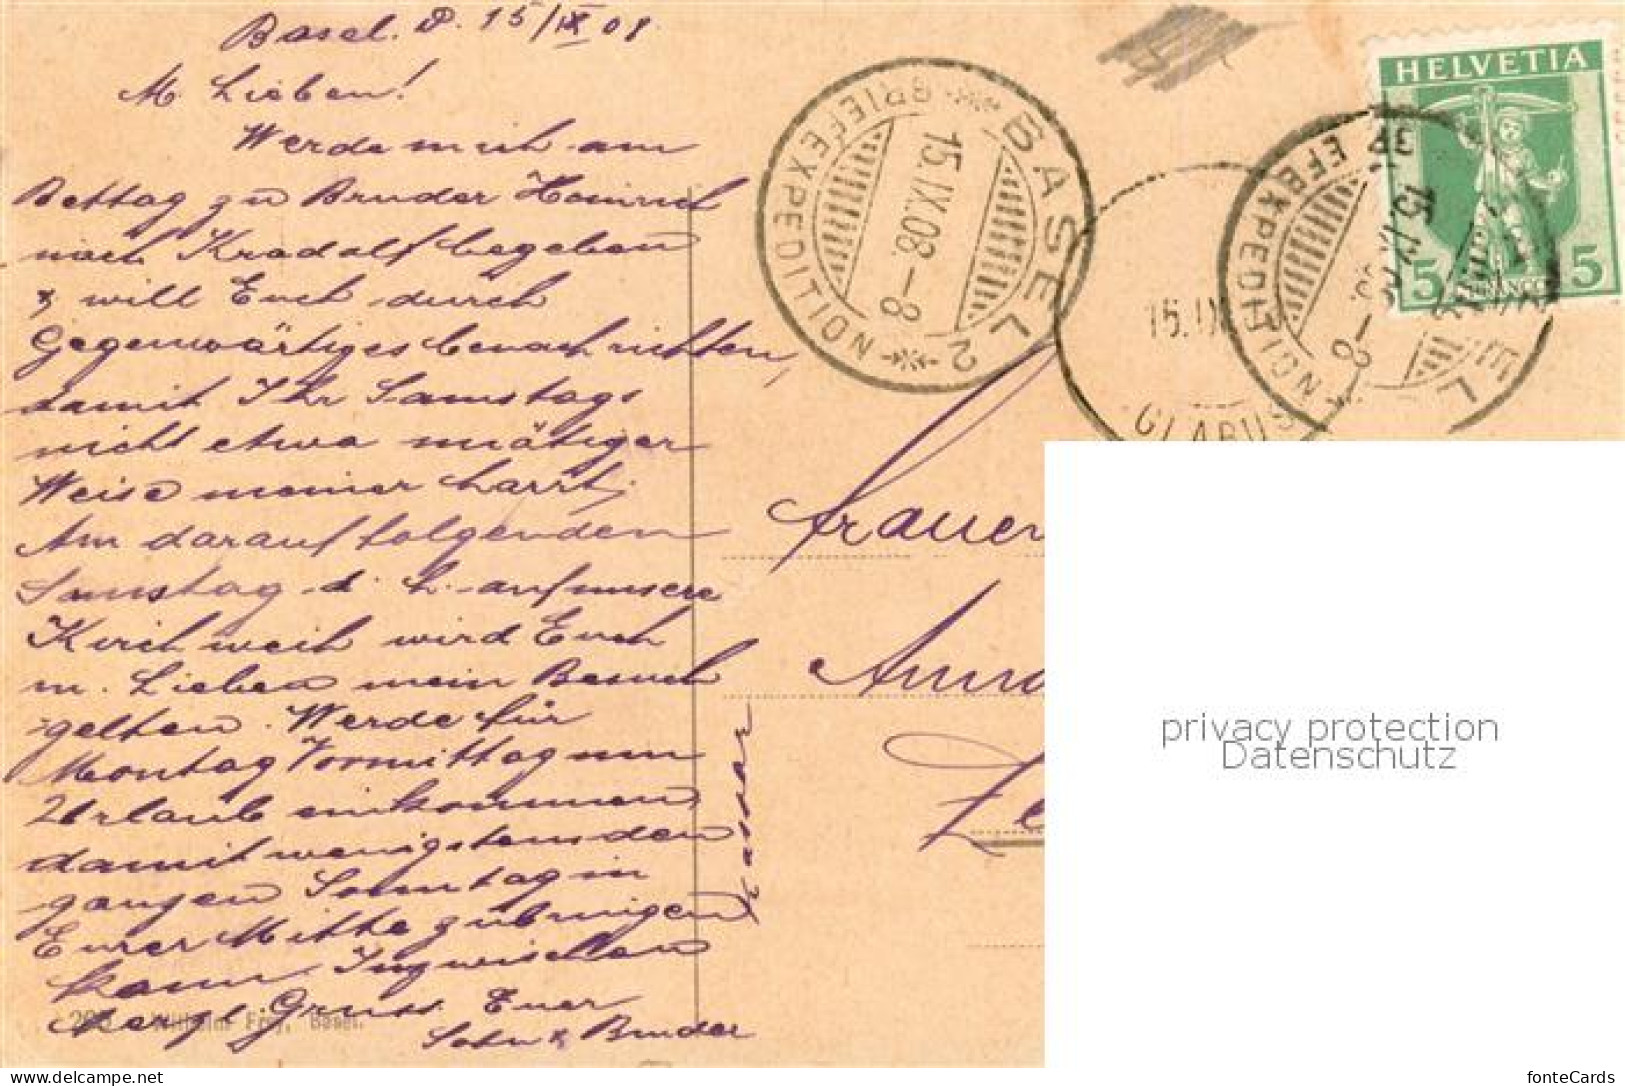 Basel. d. 15/IX 08
M. Lieben!
Werde mich am
Bettag zu Bruder Heinrich
nach Kradolf begeben
& will Euch durch
Gegenwärtiges benachrichten,
damit Ihr Samstags
nicht etwa unnötiger
Weise meiner harrt;
Am darauf folgenden
Samstag d. h. auf unsere
Kirchweih wird Euch
m. Lieben mein Besuch
gelten. Werde für
Montag Vormittag um
Urlaub einkommen,
damit wenigstens den
ganzen Sonntag in
Eurer Mitte zubringen
kann. Inzwischen
herzl. Gruss Euer
Sohn & Bruder
Kaspar
Wilhelm Frey, Basel.
BASEL 2
BRIEFEXPEDITION
15.IX.08.–8
GLARUS
15.IX
BRIEFEXPEDITION
HELVETIA
5 FRANCO 5
Frauen
Anna
privacy protection
Datenschutz
fonteCards